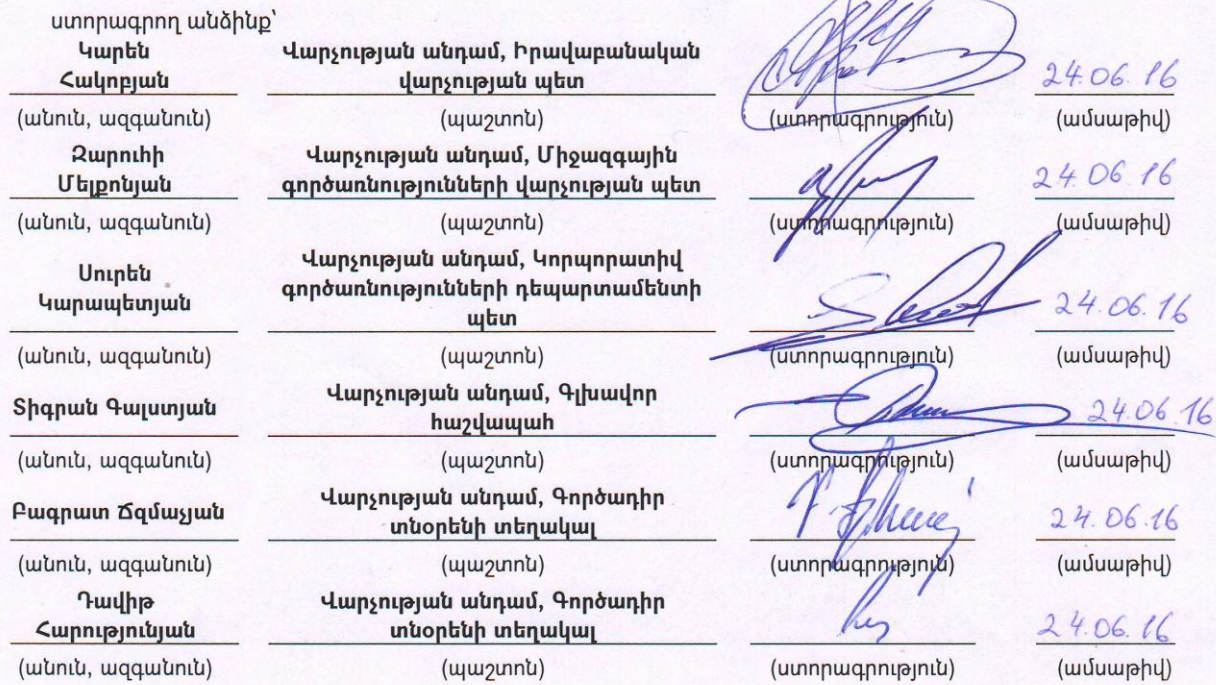 ստորագրող անձինք՝
Կարեն Վարչության անդամ, Իրավաբանական
Հակոբյան վարչության պետ 24.06.16
(անուն, ազգանուն) (պաշտոն) (ստորագրություն) (ամսաթիվ)
Զարուհի Վարչության անդամ, Միջազգային
Մելքոնյան գործառնությունների վարչության պետ 24.06.16
(անուն, ազգանուն) (պաշտոն) (ստորագրություն) (ամսաթիվ)
Սուրեն Վարչության անդամ, Կորպորատիվ
Կարապետյան գործառնությունների դեպարտամենտի
պետ 24.06.16
(անուն, ազգանուն) (պաշտոն) (ստորագրություն) (ամսաթիվ)
Տիգրան Գալստյան Վարչության անդամ, Գլխավոր
հաշվապահ 24.06.16
(անուն, ազգանուն) (պաշտոն) (ստորագրություն) (ամսաթիվ)
Բագրատ Ճզմաչյան Վարչության անդամ, Գործադիր
տնօրենի տեղակալ 24.06.16
(անուն, ազգանուն) (պաշտոն) (ստորագրություն) (ամսաթիվ)
Դավիթ Վարչության անդամ, Գործադիր
Հարությունյան տնօրենի տեղակալ 24.06.16
(անուն, ազգանուն) (պաշտոն) (ստորագրություն) (ամսաթիվ)